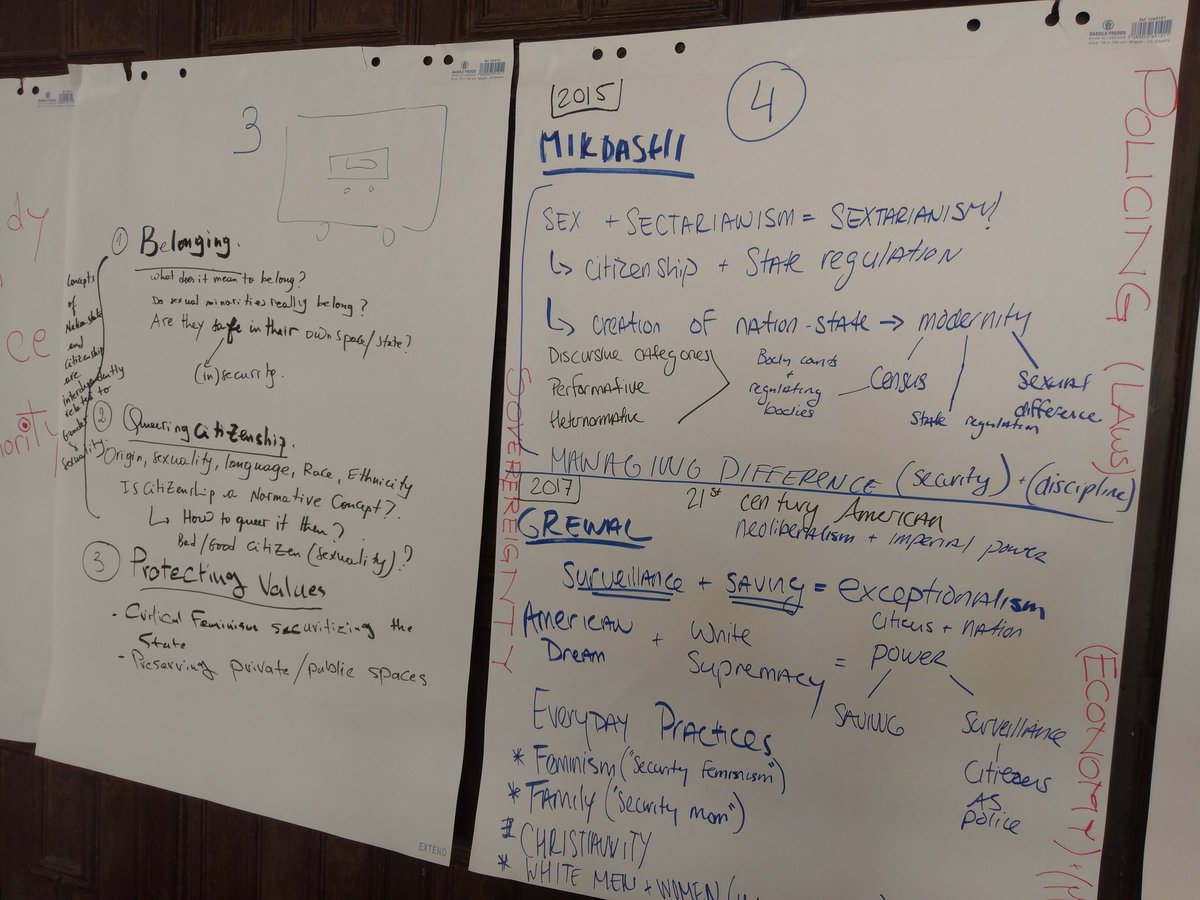 dy
ee
ority
3
Concepts
of
Nation state
and
Citizenship
are
interdependently
related to
Gender
&
Sexuality.
① Belonging.
What does it mean to belong?
Do sexual minorities really belong?
Are they safe in their own space/state?
(in)security.
② Queering Citizenship.
Origin, sexuality, language, Race, Ethnicity
Is Citizenship a Normative Concept?
↳ How to queer it then?
Bad/Good citizen (sexuality)?
③ Protecting Values
- Critical Feminism securitizing the
State
- Preserving private/public spaces
EXTEND
BASSILE FRERES
2015
4
MIKDASHI
SEX + SECTARIANISM = SEXTARIANISM!
↳ citizenship + State regulation
↳ creation of nation-state → modernity
Discursive categories
Performative
Heternormative
Body counts
+
regulating
bodies
Census
State regulation
sexual
difference
MANAGING DIFFERENCE (security) + (discipline)
2017
21st century American
neoliberalism + imperial power
GREWAL
Surveillance + SAVING = exceptionalism
citicus + nation
American
Dream
+ White
Supremacy
= power
SAVING
Surveillance
Citizens
AS
police
Everyday Practices
* Feminism ("security feminism")
* Family ("security mom")
* CHRISTIANNITY
* WHITE MEN + WOMEN
SOVEREIGNTY
POLICING (LAWS)
(ECONOMY) +
BASSILE FRERES